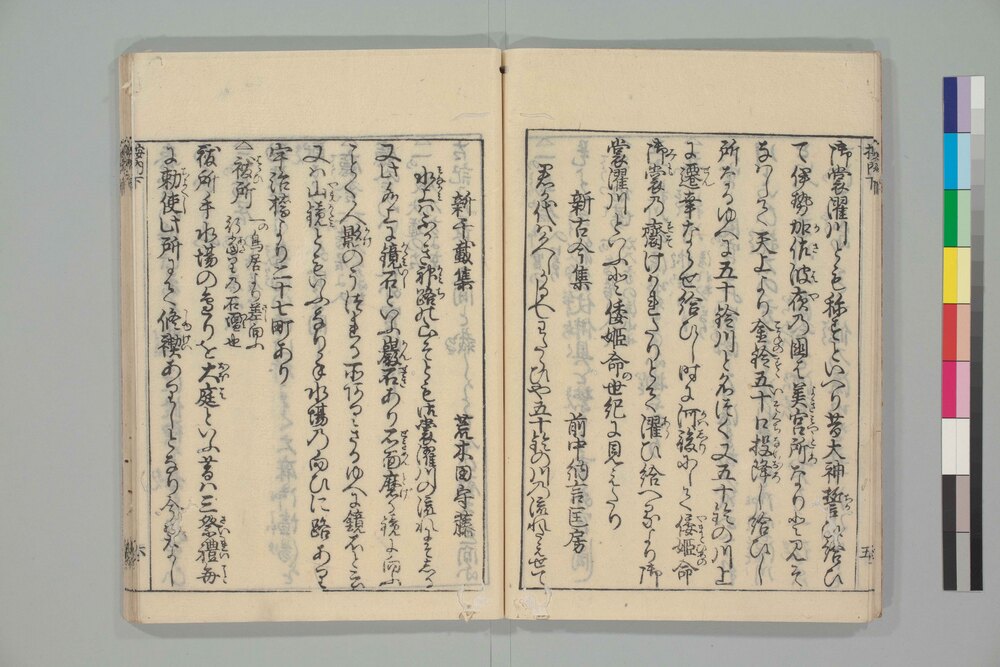 御裳濯川とも称すといへり昔大神誓ひ給ひ
て伊勢加佐波夜の国は美宮所なりと見そ
なハして天上より金鈴五十口投降し給ひし
所なるゆへに五十鈴川と名づく又五十鈴の川上
に遷幸ならせ給ひし時に河後にして倭姫命
御裳の齋けがれたりとて濯ひ給へるより御
裳濯川といふと倭姫命世紀に見へたり
新古今集 前中納言匡房
君が代ハ久しかるべしわたらひや五十鈴の川の流れたえせで
新千載集 荒木田守藤
水上ハふかき神路の山そとも御裳濯川の流れにそしる
又此川上に鏡石といふ巌石あり石面磨く鏡に向ふ
ことく人影のうつる
又ハ山鏡ともいふなり手水場の向ひに路あり
宇治橋より二十七町あり
祓所 一の鳥居より差向ふ
の石壇也
祓所手水場のあたりを大庭といふ昔ハ三祭礼毎
に勅使此所にて修禊ありしとなり今ハなし
五
六